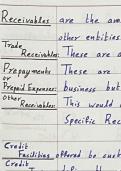 Receivables are the am
other entities
Trade
Receivables: These are a
Prepayments These are
or
Prepaid Expenses: business but
Other
Receivables: This would
Specific Rec
Credit
Facilities offered to cust
Credit